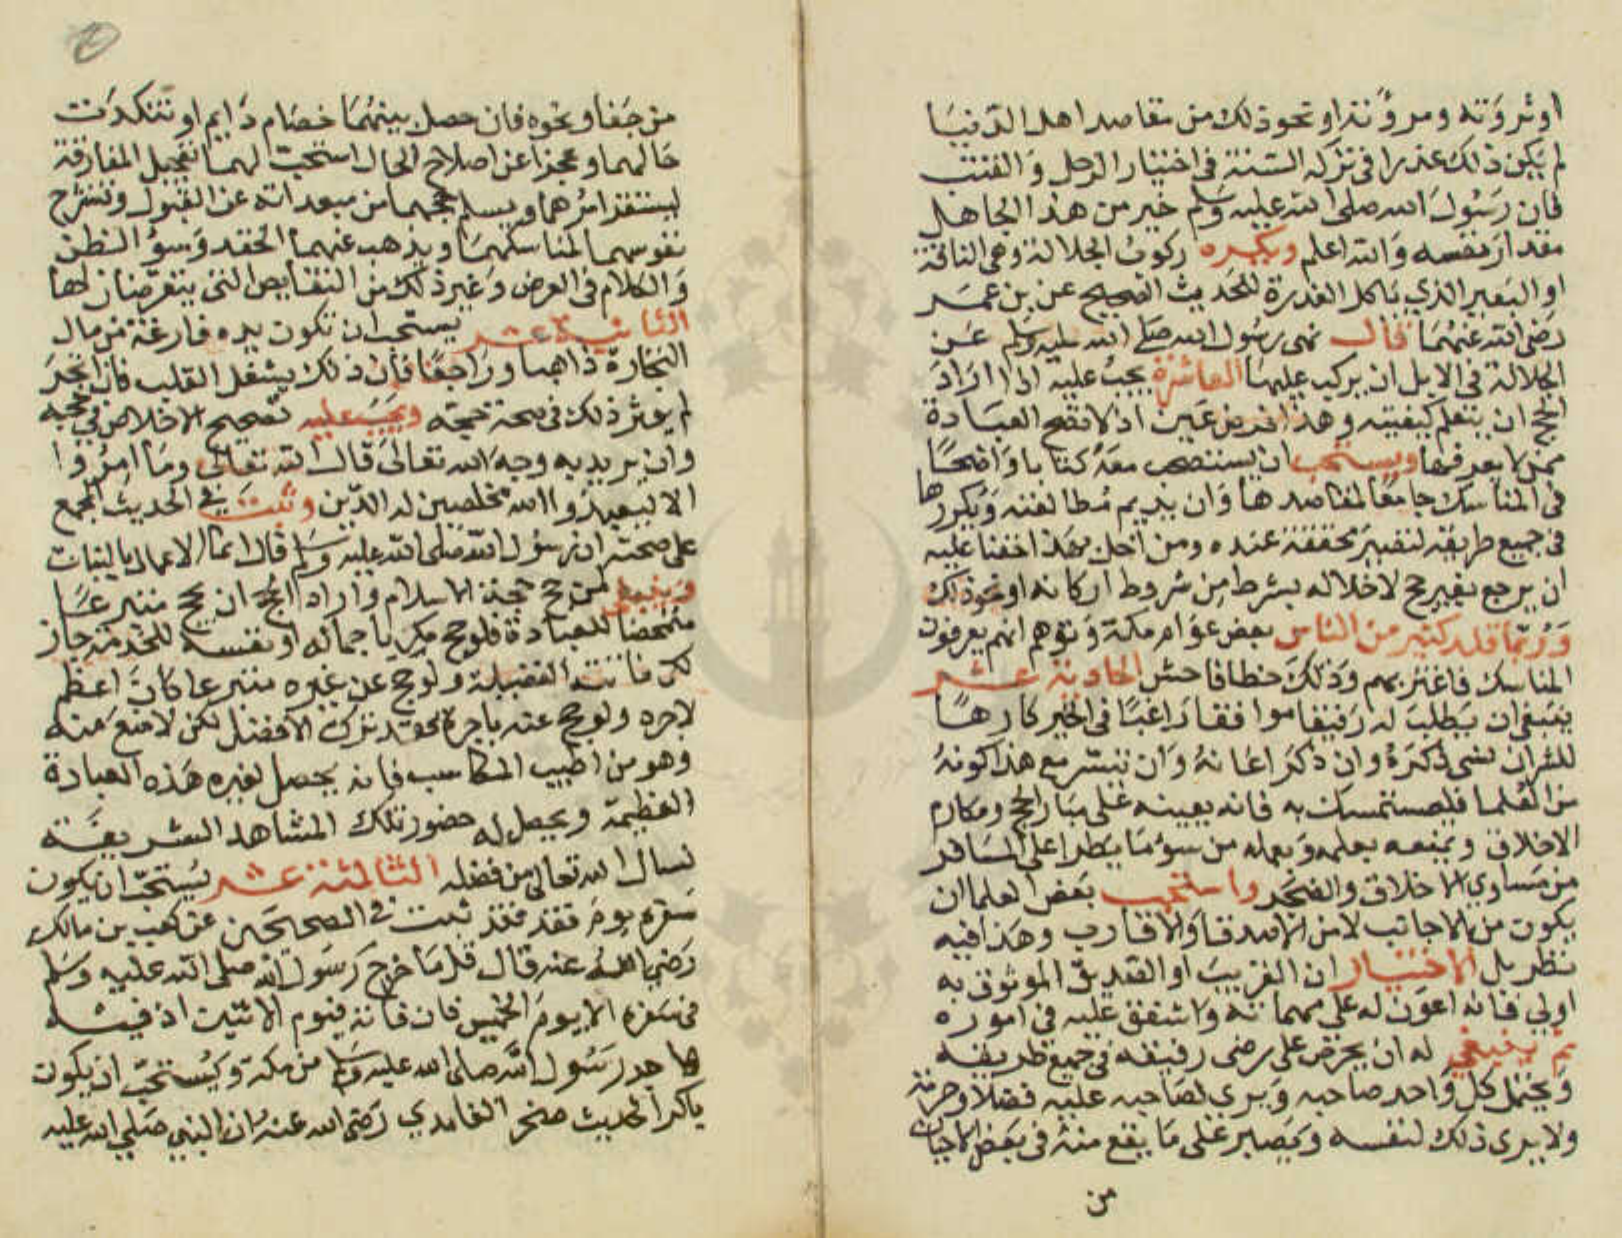 او ثروته ومروءته او نحو ذلك من مقاصد اهل الدنيا
لم يكن ذلك عذرا في تركه السنة في اختيار الرحل والقتب
فان رسول الله صلى الله عليه وسلم خير من هذا الجاهل
مقدار نفسه والله اعلم ويكره ركوب الجلالة وهي الناقة
او البعير الذي ياكل العذرة للحديث الصحيح عن بن عمر
رضي الله عنهما قال نهى رسول الله صلى الله عليه وسلم عن
الجلالة في الابل ان يركب عليها العاشرة يجب عليه اذا اراد
الحج ان يتعلم كيفيته وهذا فرض عين اذ لا تصح العبادة
ممن لا يعرفها ويستحب ان يستصحب معه كتابا واضحا
في المناسك جامعا لمقاصدها وان يديم مطالعته ويكررها
في جميع طريقه لتصير محققة عنده ومن اخل بهذا خفنا عليه
ان يرجع بغير حج لاخلاله بشرط من شروط اركانه او نحو ذلك
وربما قلد كثير من الناس بعض عوام مكة وتوهم انهم يعرفون
المناسك فاغتر بهم وذلك خطا فاحش الحادية عشر
ينبغي ان يطلب له رفيقا موافقا راغبا في الخير كارها
للشر ان نسي ذكره وان ذكر اعانه وان تيسر مع هذا كونه
من العلما فليستمسك به فانه يعينه على مبار الحج ومكارم
الاخلاق ويمنعه بعلمه وعمله من سوء ما يطرا على المسافر
من مساوي الاخلاق والضجر واستحب بعض العلما ان
يكون من الاجانب لا من الاصدقا والاقارب وهذا فيه
نظر بل الاختيار ان القريب او الصديق الموثوق به
اولى فانه اعون له على مهماته واشفق عليه في اموره
ثم ينبغي له ان يحرص على رضى رفيقه في جميع طريقه
ويحتمل كل واحد صاحبه ويرى لصاحبه عليه فضلا وحرمة
ولا يرى ذلك لنفسه ويصبر على ما يقع منه في بعض الاحيان
من
من جفا ونحوه فان حصل بينهما خصام دايم او تنكدت
حالهما وعجزا عن اصلاح الحال استحب لهما تعجيل المفارقة
ليستقر امرهما ويسلم حجهما من مبعداته عن القبول وتنشرح
نفوسهما لمناسكهما ويذهب عنهما الحقد وسوء الظن
والكلام في العرض وغير ذلك من النقايص التي يتعرضان لها
الثانية عشر يستحب ان تكون يده فارغة من مال
التجارة ذاهبا وراجعا فان ذلك يشغل القلب فان اتجر
لم يوثر ذلك في صحة حجه ويجب عليه تصحيح الاخلاص في حجه
وان يريد به وجه الله تعالى قال الله تعالى وما امروا
الا ليعبدوا الله مخلصين له الدين وثبت في الحديث المجمع
على صحته ان رسول الله صلى الله عليه وسلم قال انما الاعمال بالنيات
وينبغي لمن حج حجة الاسلام واراد الحج ان يحج متبرعا
متمحضا للعبادة فلو حج مكريا جماله او نفسه للخدمة جاز
لكن فاتته الفضيلة ولو حج عن غيره متبرعا كان اعظم
لاجره ولو حج عنه باجرة فقد ترك الافضل لكن لا منع منه
وهو من اطيب المكاسب فانه يحصل لغيره هذه العبادة
العظيمة ويحصل له حضور تلك المشاهد الشريفة
يسال الله تعالى من فضله الثالثة عشر يستحب ان يكون
سفره يوم فقد ثبت في الصحيحين عن كعب بن مالك
رضي الله عنه قال قل ما خرج رسول الله صلى الله عليه وسلم
في سفره الا يوم الخميس فان فاته فيوم الاثنين اذ فيه
هاجر رسول الله صلى الله عليه وسلم من مكة ويستحب ان يكون
باكرا لحديث صخر الغامدي رضي الله عنه ان النبي صلى الله عليه